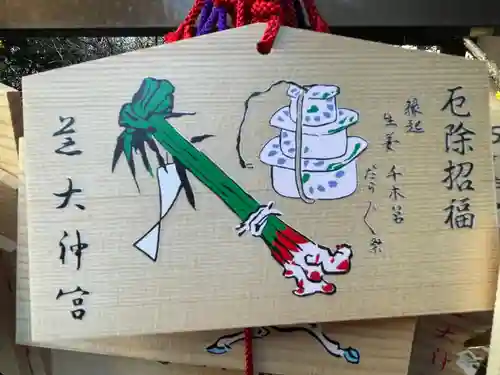 厄除招福
縁起
生姜 千木筥
だら〲祭
芝大神宮